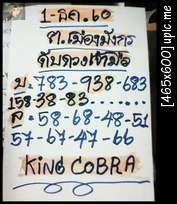 1-มี.ค.60
ต.เมืองมังกร
บ.783-938-683
158-38-83.....
ล=58-68-48-51
57-67-47-66
KING COBRA
[465x600] upic.me